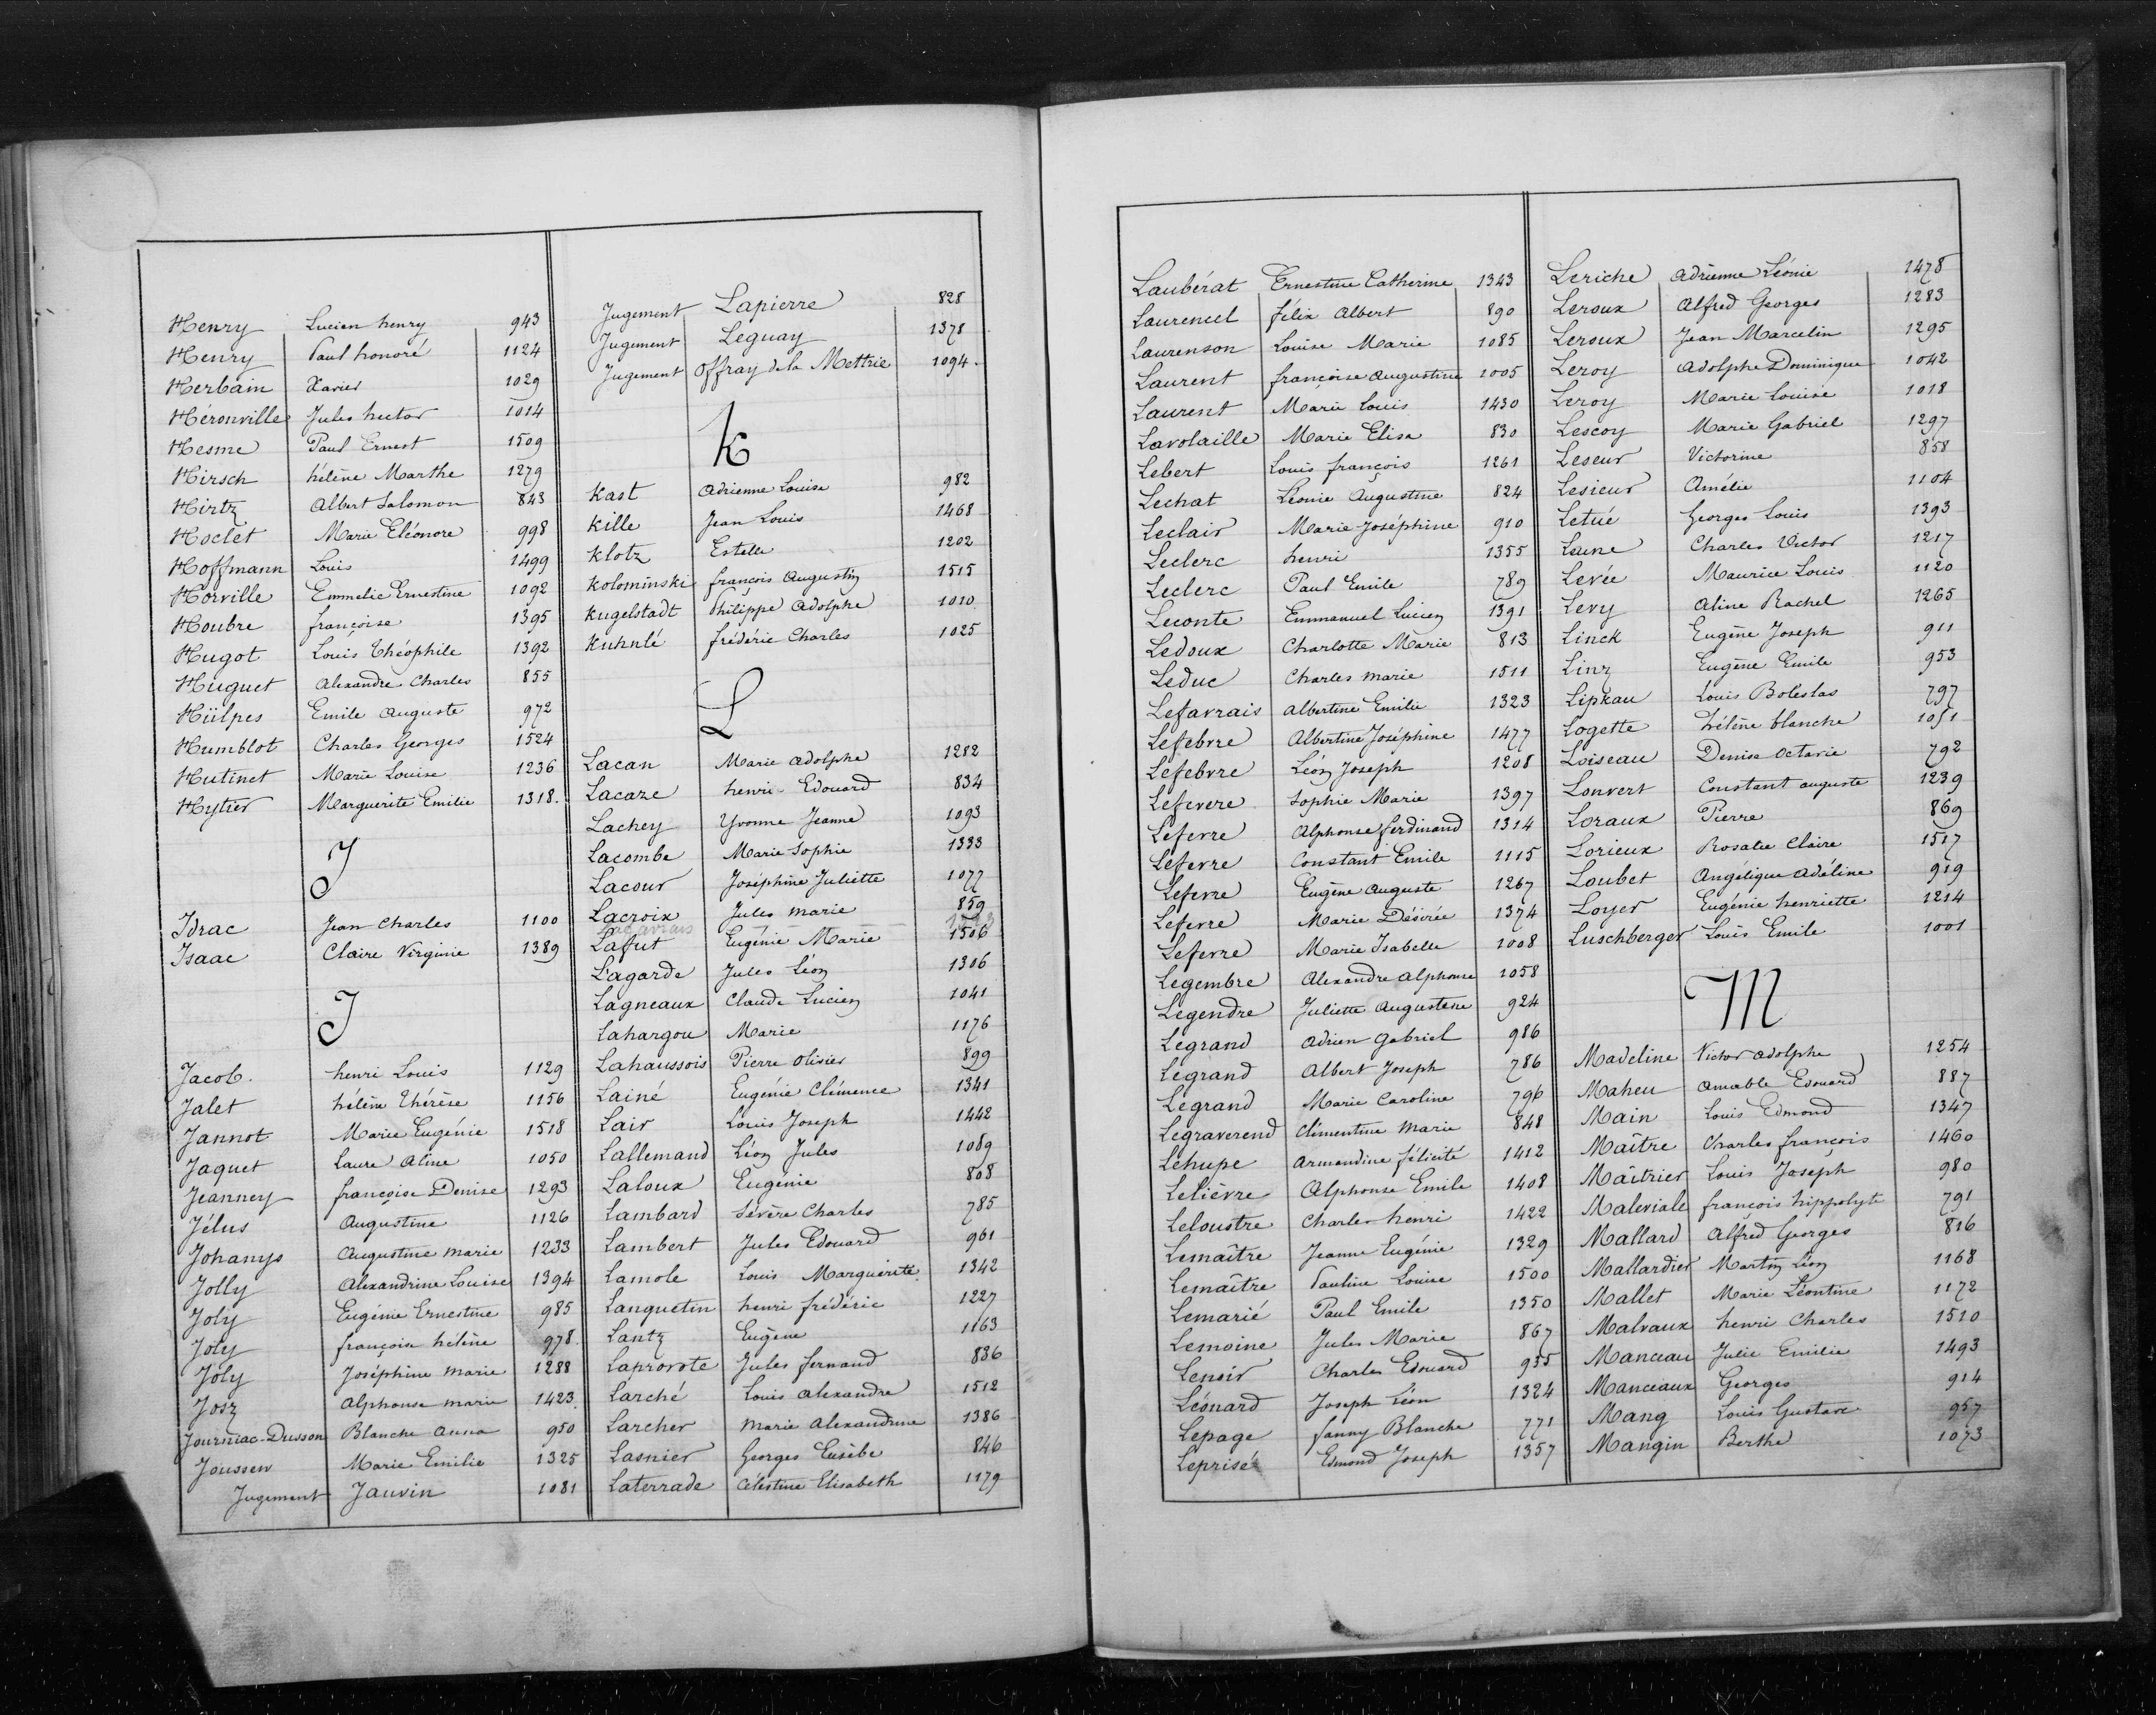 Henry Lucien henry 943
Henry Paul honoré 1124
Herbain Xavier 1029
Héronville Jules hector 1014
Hesme Paul Ernest 1509
Hirsch hélène Marthe 1279
Hirtz Albert Salomon 843
Hoclet Marie Eléonore 998
Hoffmann Louis 1499
Horville Emmelie Ernestine 1092
Houbre françoise 1395
Hugot Louis Théophile 1392
Huguet Alexandre Charles 855
Hülpes Emile Auguste 972
Humblot Charles Georges 1524
Hutinet Marie Louise 1236
Hytier Marguerite Emilie 1318.
I
Idrac Jean Charles 1100
Isaac Claire Virginie 1389
J
Jacob. henri Louis 1129
Jalet hélène Thérèse 1156
Jannot Marie Eugénie 1518
Jaquet Laure Aline 1050
Jeanney françoise Denise 1293
Jélus Augustine 1126
Johanys Augustine Marie 1233
Jolly Alexandrine Louise 1394
Joly Eugénie Ernestine 985
Joly françoise hélène 978.
Joly Joséphine Marie 1288
Josz Alphonse marie 1423.
Journiac-Dusson Blanche Anna 950
Joussen Marie Emilie 1325
Jugement Jauvin 1081
Jugement Lapierre 828
Jugement Leguay 1378
Jugement Offray de la Mettrie 1094.
K
Kast Adrienne Louise 982
Kille Jean Louis 1468
Klotz Estelle 1202
Kolominski françois Augustin 1515
Kugelstadt Philippe Adolphe 1010
Kuhnlé frédéric Charles 1025
L
Lacan Marie Adolphe 1282
Lacaze henri Edouard 834
Lachey Yvonne Jeanne 1093
Lacombe Marie Sophie 1333
Lacour Joséphine Juliette 1077
Lacroix Jules Marie 859
Lafut Eugénie Marie 1506
Lagarde Jules Léon 1306
Lagneaux Claude Lucien 1041
Lahargou Marie 1176
Lahaussois Pierre Olivier 899
Lainé Eugénie Clémence 1341
Lair Louis Joseph 1442
Lallemand Léon Jules 1089
Laloux Eugénie 808
Lambard Sévère Charles 785
Lambert Jules Edouard 961
Lamole Louis Marguerite 1342
Languetin henri frédéric 1227
Lantz Eugène 1163
Laprovote Jules fernand 836
Larché Louis Alexandre 1512
Larcher Marie Alexandrine 1386
Lasnier Georges Eusèbe 846
Laterrade Célestine Elisabeth 1179
Laubérat Ernestine Catherine 1343
Laurencel félix Albert 890
Laurenson Louise Marie 1085
Laurent françoise Augustine 1005
Laurent Marie Louis 1430
Lavolaille Marie Elisa 830
Lebert Louis françois 1261
Lechat Léonie Augustine 824
Leclair Marie Joséphine 910
Leclerc henri 1355
Leclerc Paul Emile 789
Leconte Emmanuel Lucien 1391
Ledoux Charlotte Marie 813
Leduc Charles marie 1511
Lefavrais Albertine Emilie 1323
Lefebvre Albertine Joséphine 1477
Lefebvre Léon Joseph 1208
Lefevere Sophie Marie 1397
Lefevre Alphonse ferdinand 1314
Lefevre Constant Emile 1115
Lefevre Eugène Auguste 1267
Lefevre Marie Désirée 1374
Lefevre Marie Isabelle 1008
Legembre Alexandre Alphonse 1058
Legendre Juliette Augustine 924
Legrand Adrien Gabriel 986
Legrand Albert Joseph 786
Legrand Marie Caroline 796
Legraverend Clémentine Marie 848
Lehupe Armandine félicité 1412
Lelièvre Alphonse Emile 1408
Leloustre Charles henri 1422
Lemaître Jeanne Eugénie 1329
Lemaître Pauline Louise 1500
Lemarié Paul Emile 1350
Lemoine Jules Marie 867
Lenoir Charles Edouard 935
Léonard Joseph Léon 1324
Lepage fanny Blanche 771
Leprisé Edmond Joseph 1357
Leriche Adrienne Léonie 1478
Leroux Alfred Georges 1283
Leroux Jean Marcelin 1295
Leroy Adolphe Dominique 1042
Leroy Marie Louise 1018
Lescoy Marie Gabriel 1297
Leseur Victorine 858
Lesieur Amélie 1104
Letué Georges Louis 1393
Leune Charles Victor 1217
Levée Maurice Louis 1120
Levy Aline Rachel 1265
Linck Eugène Joseph 911
Linz Eugène Emile 953
Lipkau Louis Boleslas 797
Logette hélène blanche 1051
Loiseau Denise Octavie 792
Lonvert Constant auguste 1239
Loraux Pierre 869
Lorieux Rosalie Claire 1517
Loubet Angélique Adéline 919
Loyer Eugénie henriette 1214
Luschberger Louis Emile 1001
M
Madeline Victor Adolphe 1254
Maheu Amable Edouard 887
Main Louis Edmond 1347
Maître Charles françois 1460
Maîtrier Louis Joseph 980
Maleviale françois hippolyte 791
Mallard Alfred Georges 816
Mallardier Martin Léon 1168
Mallet Marie Léontine 1172
Malvaux henri Charles 1510
Manceau Julie Emilie 1493
Manceaux Georges 914
Mang Louis Gustave 957
Mangin Berthe 1073